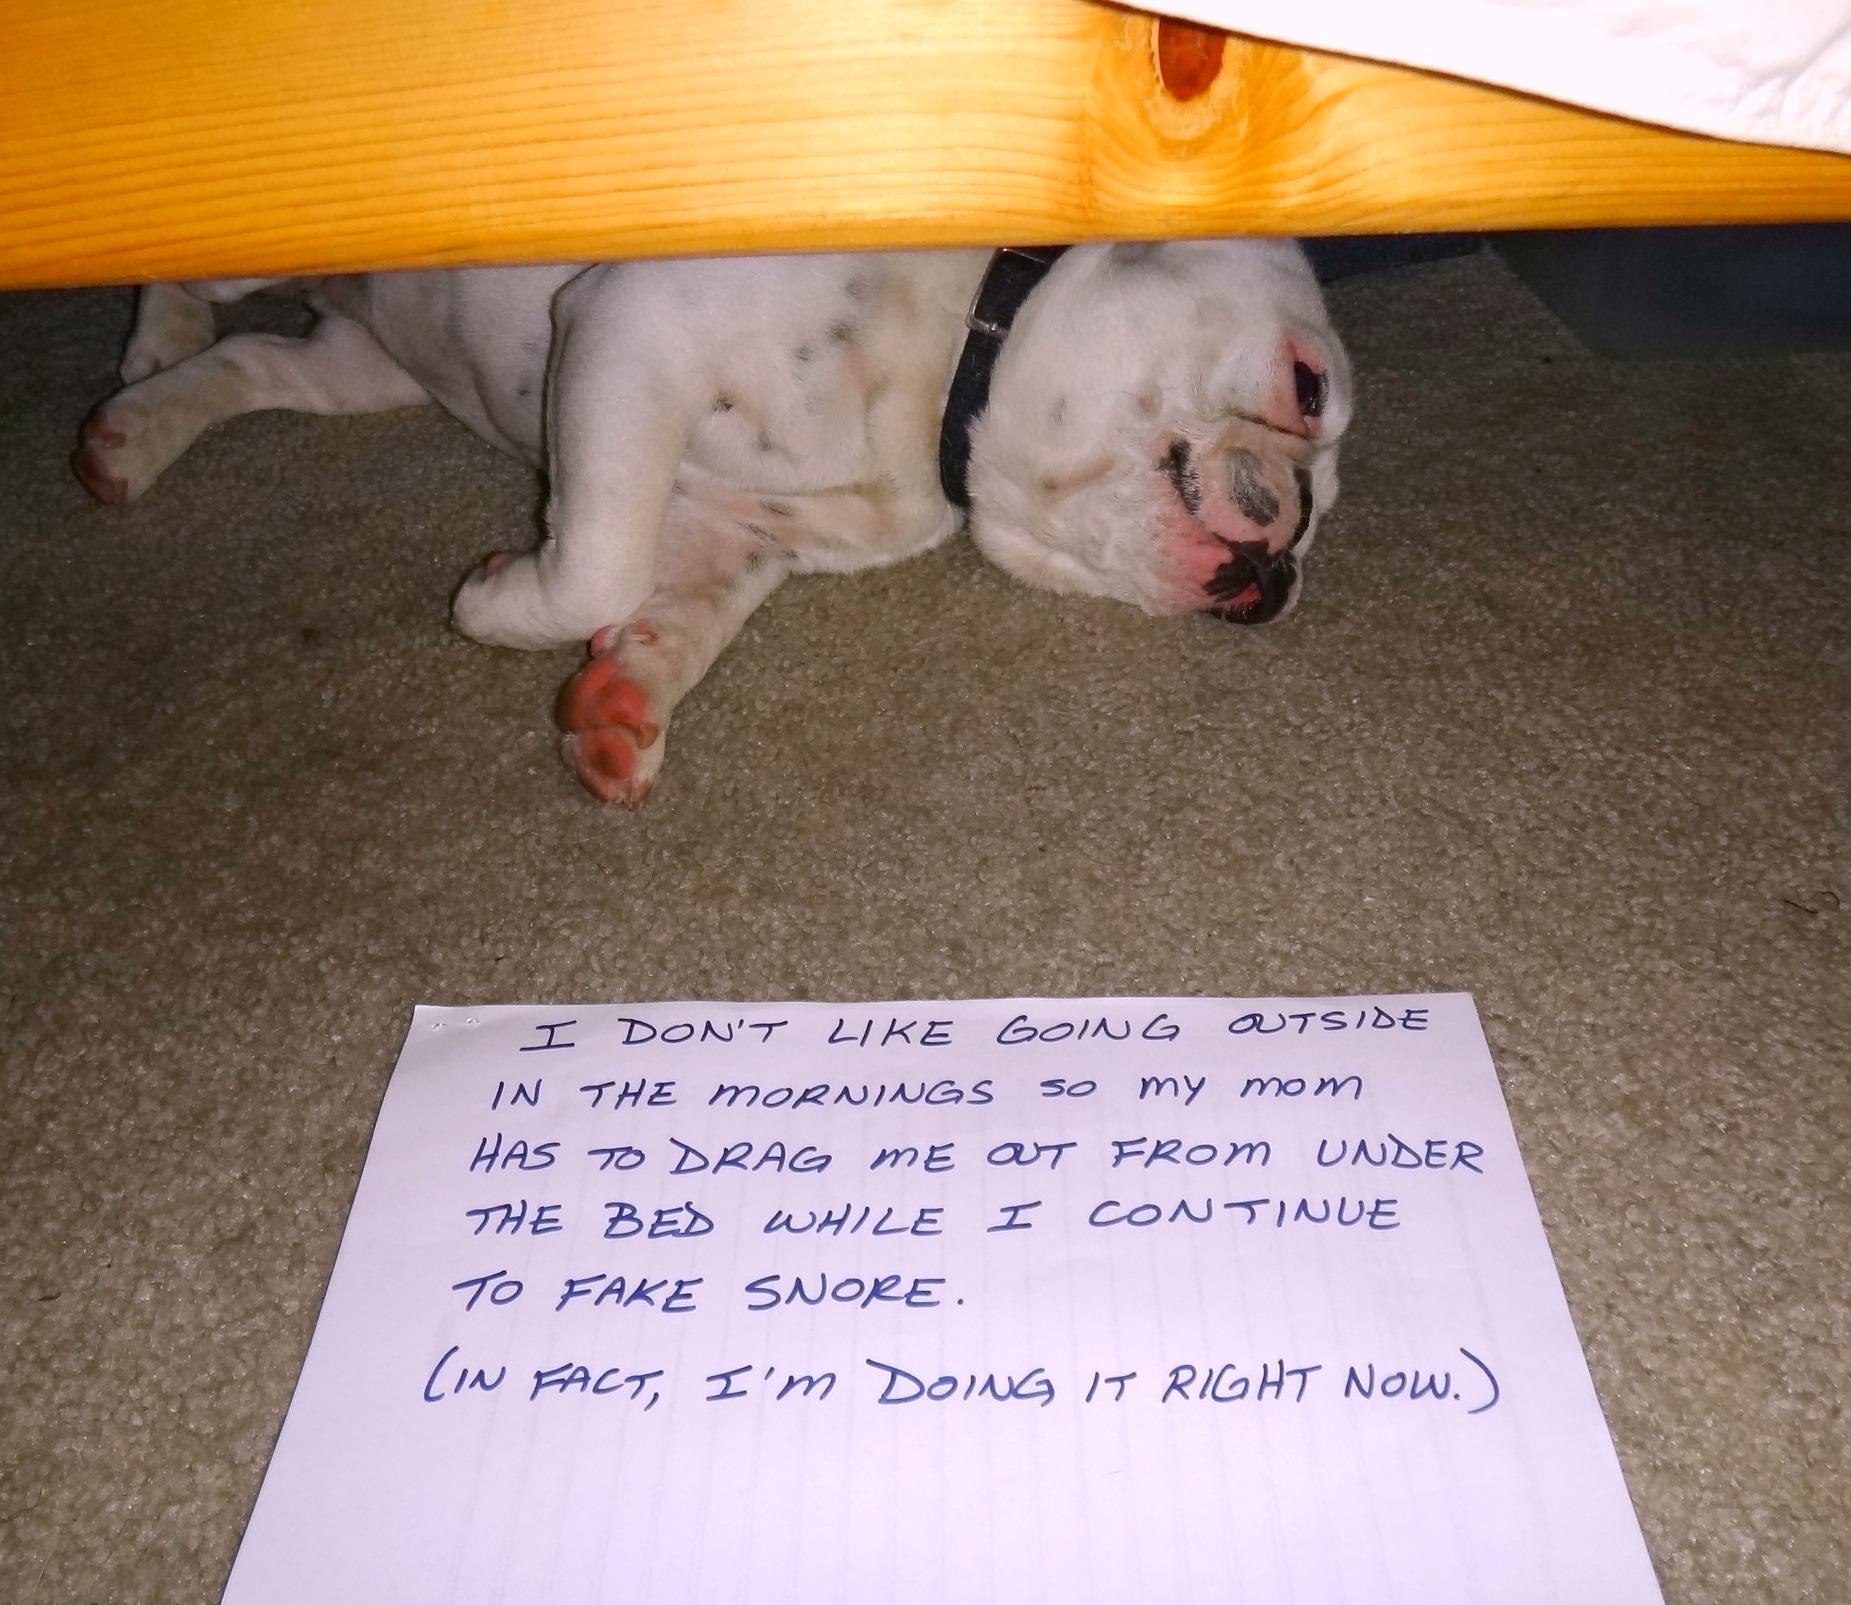 I DON'T LIKE GOING OUTSIDE
IN THE MORNINGS SO MY MOM
HAS TO DRAG ME OUT FROM UNDER
THE BED WHILE I CONTINUE
TO FAKE SNORE.
(IN FACT, I'M DOING IT RIGHT NOW.)